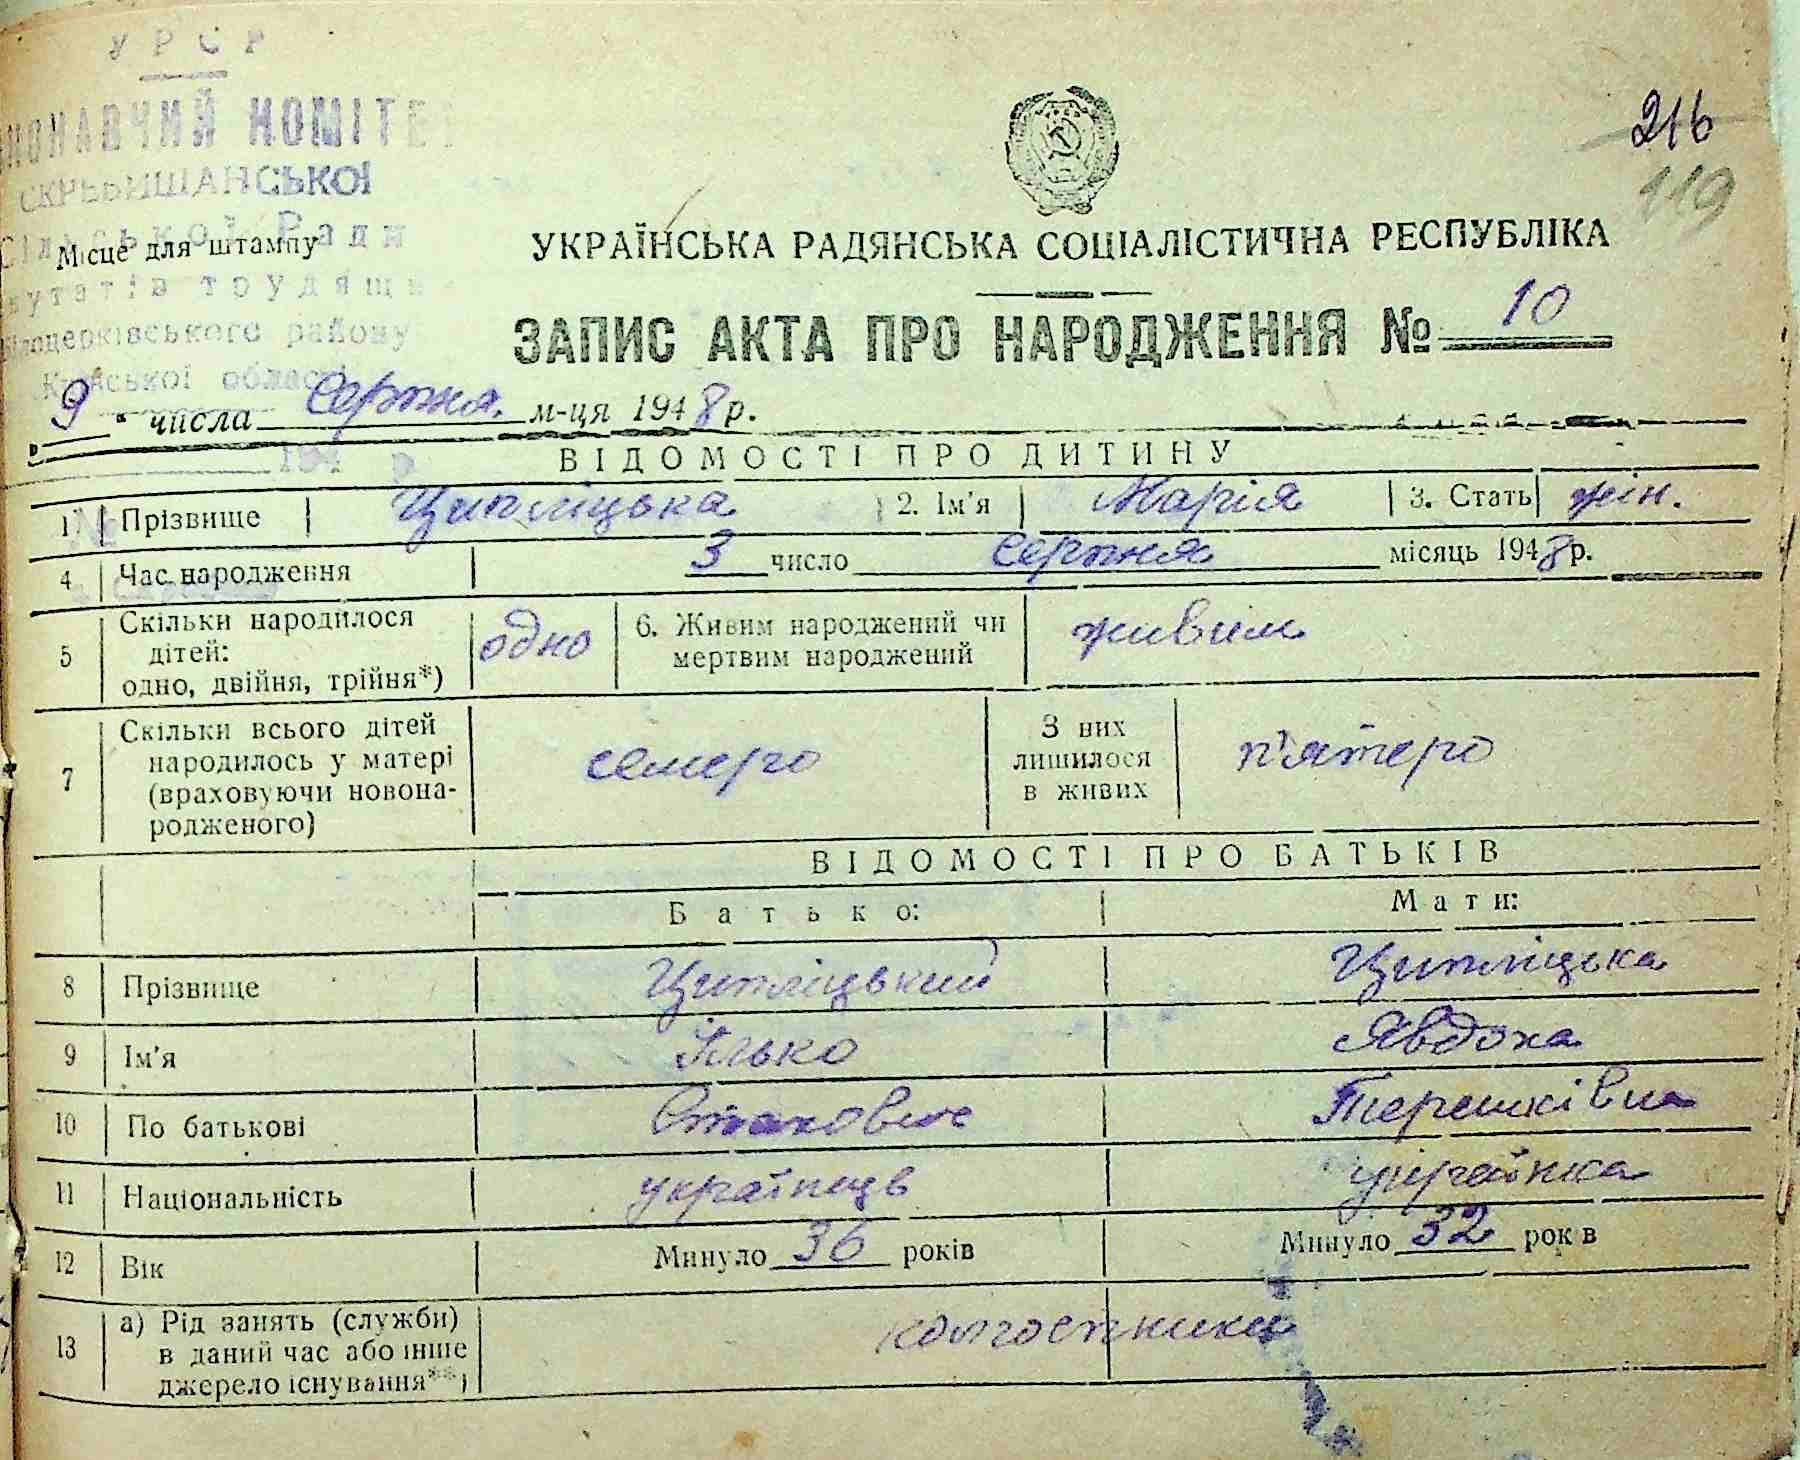 УРСР
КОМІТЕ
216
119
СКРЕБИШАНСЬКОЇ
Сільської Ради
Місце для штампу
УКРАЇНСЬКА РАДЯНСЬКА СОЦІАЛІСТИЧНА РЕСПУБЛІКА
трудящ
ЗАПИС АКТА ПРО НАРОДЖЕННЯ № 10
району
області
„9“ числа серпня м-ця 1948 р.
194 р
ВІДОМОСТІ ПРО ДИТИНУ
1 Прізвище Ципліцька 2. Ім'я Марія 3. Стать жін.
4 Час народження 3 число серпня місяць 1948 р.
5 Скільки народилося дітей: одно, двійня, трійня*) одно 6. Живим народжений чи мертвим народжений живим
7 Скільки всього дітей народилось у матері (враховуючи новонародженого) семеро З них лишилося в живих п'ятеро
ВІДОМОСТІ ПРО БАТЬКІВ
Батько: Мати:
8 Прізвище Ципліцький Ципліцька
9 Ім'я Ілько Явдоха
10 По батькові Терешківна
11 Національність українець українка
12 Вік Минуло 36 років Минуло 32 рок в
13 а) Рід занять (служби) в даний час або інше джерело існування**) колгоспники